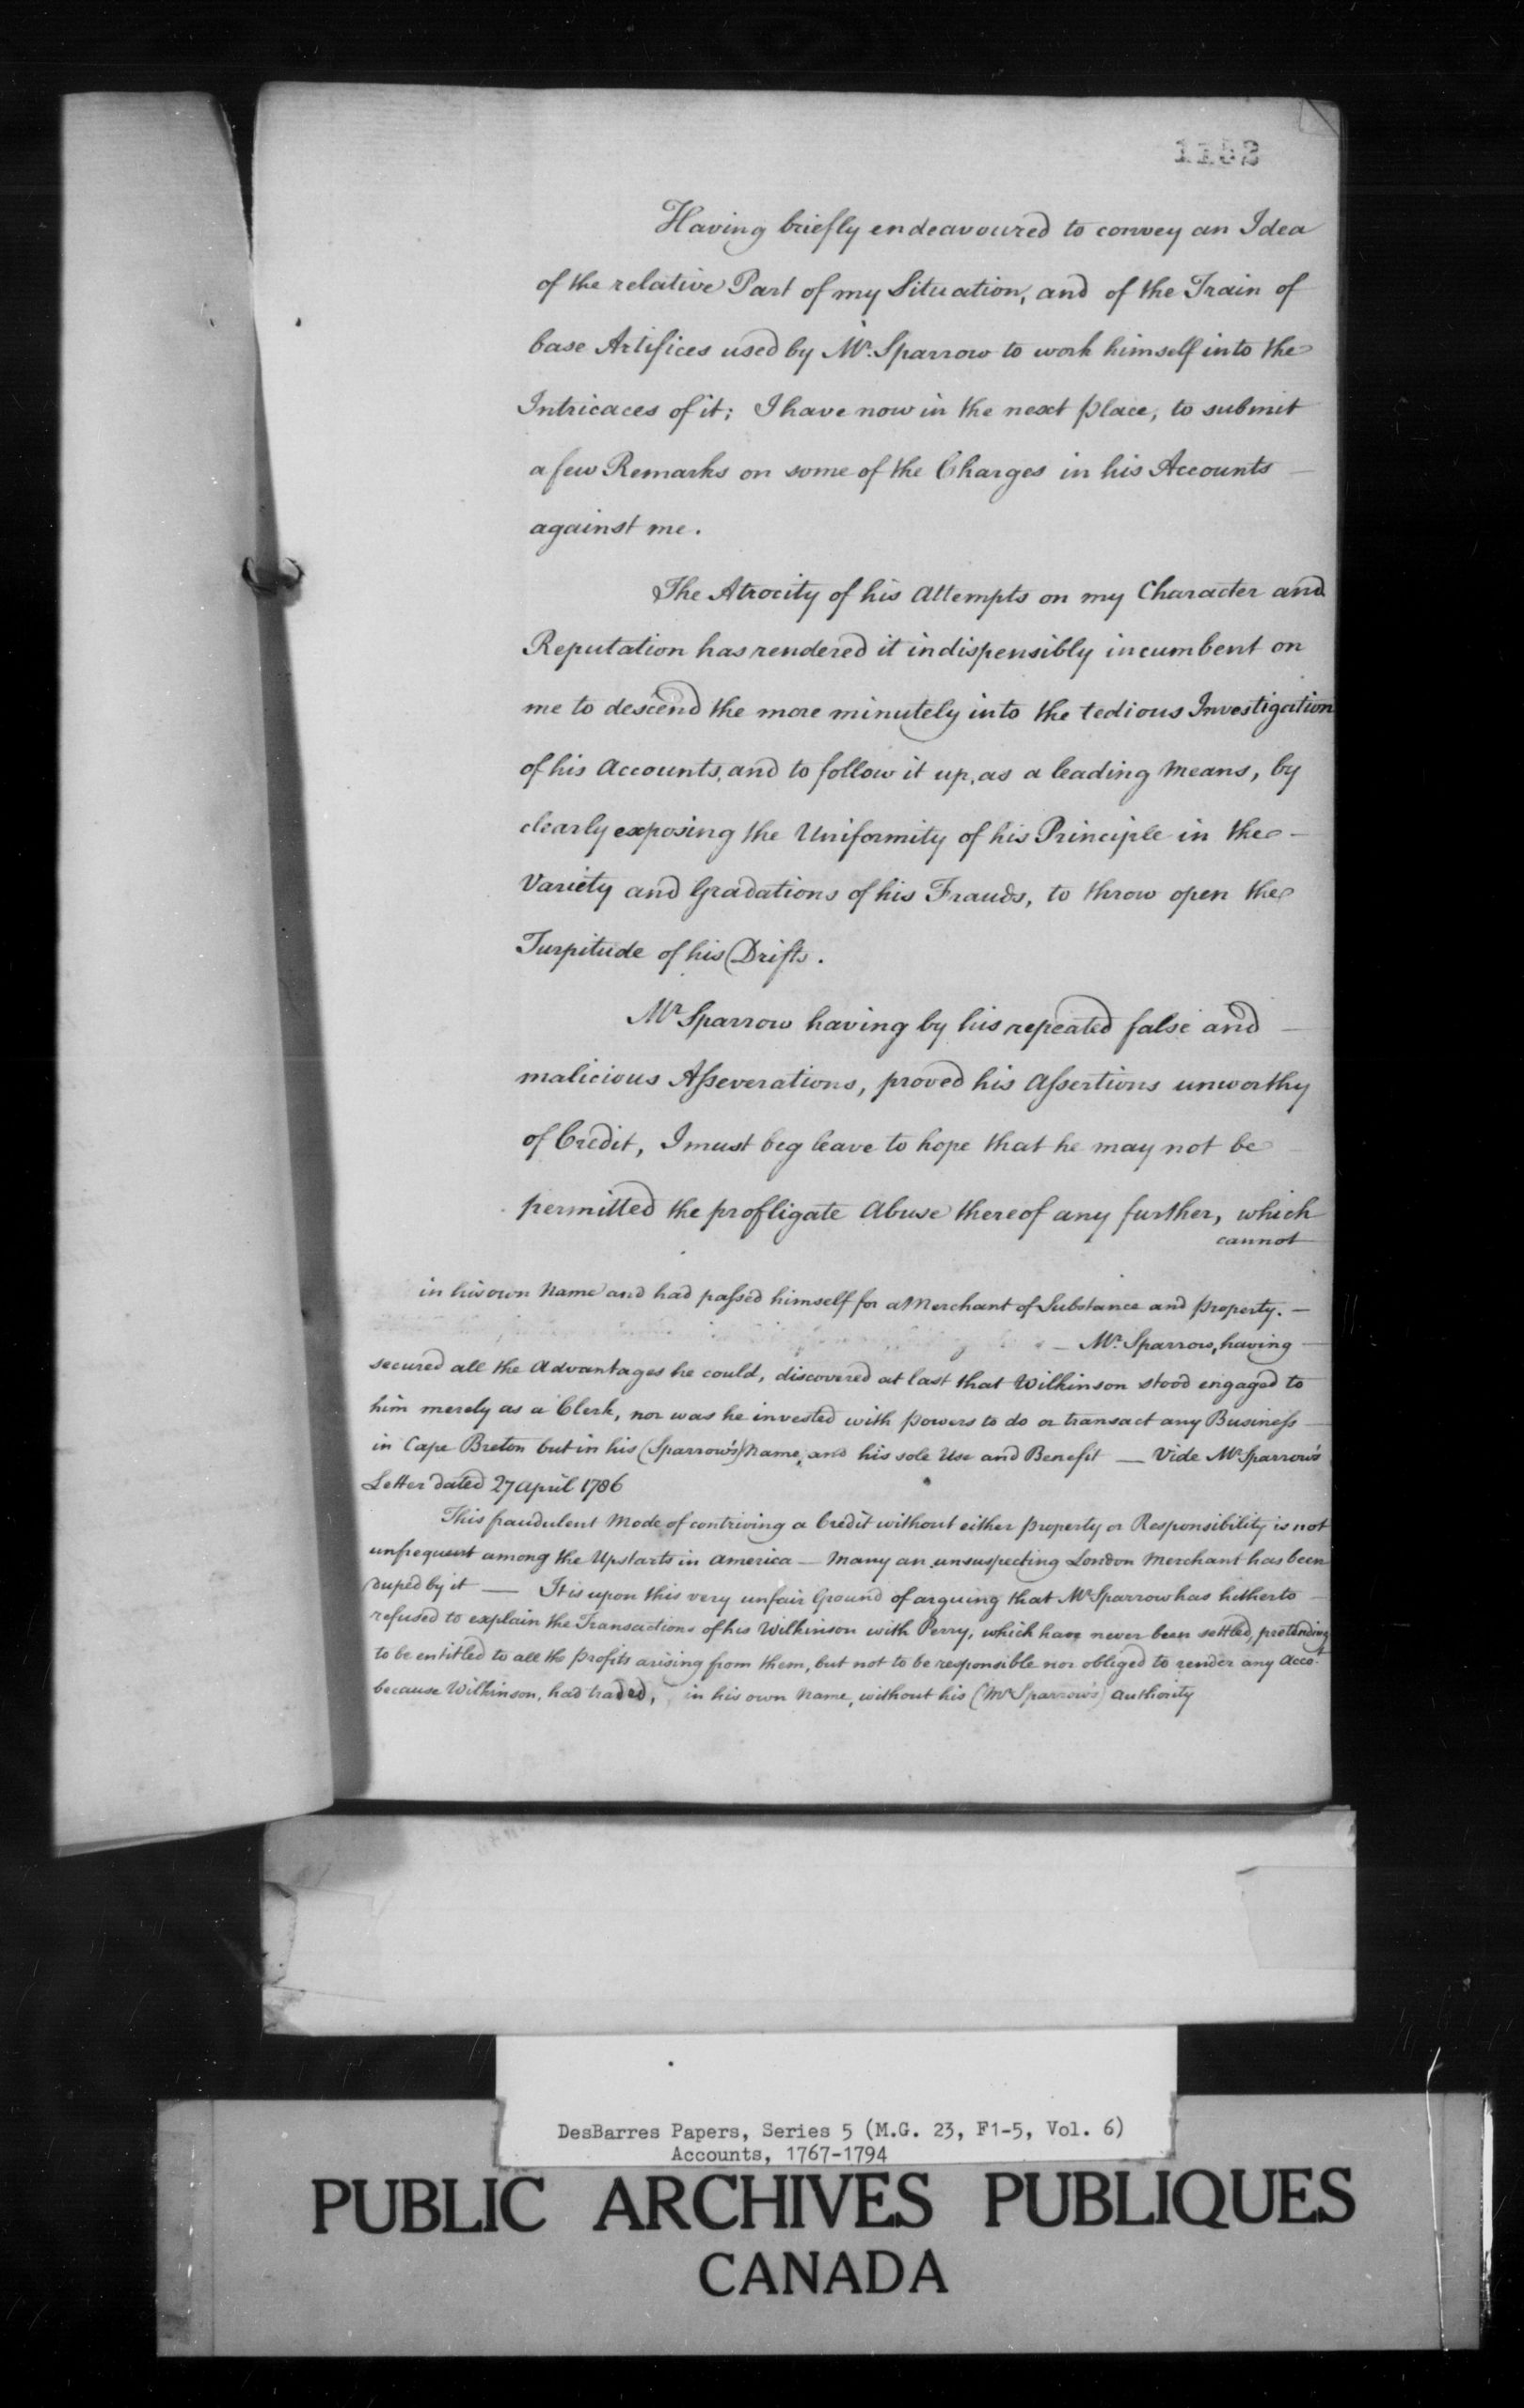 Having briefly endeavoured to convey an Idea
of the relative Part of my Situation, and of the Train of
base Artifices used by Mr. Sparrow to work himself into the
Intricaces of it; I have now in the next place, to submit
a few Remarks on some of the Charges in his Accounts —
against me.
The Atrocity of his Attempts on my Character and
Reputation has rendered it indispensibly incumbent on
me to descend the more minutely into the tedious Investigation
of his Accounts, and to follow it up, as a leading Means, by
clearly exposing the Uniformity of his Principle in the —
Variety and Gradations of his Frauds, to throw open the
Turpitude of his Drifts.
Mr Sparrow having by his repeated false and —
malicious Asseverations, proved his Assertions unworthy
of Credit, I must beg leave to hope that he may not be
permitted the profligate Abuse thereof any further, which
cannot
in his own Name and had passed himself for a Merchant of Substance and Property. —
— Mr. Sparrow, having —
secured all the Advantages he could, discovered at last that Wilkinson stood engaged to
him merely as a Clerk, nor was he invested with Powers to do or transact any Business —
in Cape Breton but in his (Sparrow's) Name, and his sole Use and Benefit — Vide Mr Sparrow's
Letter dated 27 April 1786
This fraudulent Mode of contriving a Credit without either Property or Responsibility is not
unfrequent among the Upstarts in America — Many an unsuspecting London Merchant has been
duped by it — It is upon this very unfair Ground of arguing that Mr Sparrow has hitherto —
refused to explain the Transactions of his Wilkinson with Perry, which have never been settled, pretending
to be entitled to all the Profits arising from them, but not to be responsible nor obliged to render any Acco.t
because Wilkinson, had traded, in his own Name, without his (Mr Sparrow's) Authority
DesBarres Papers, Series 5 (M.G. 23, F1-5, Vol. 6)
Accounts, 1767-1794
PUBLIC ARCHIVES PUBLIQUES
CANADA